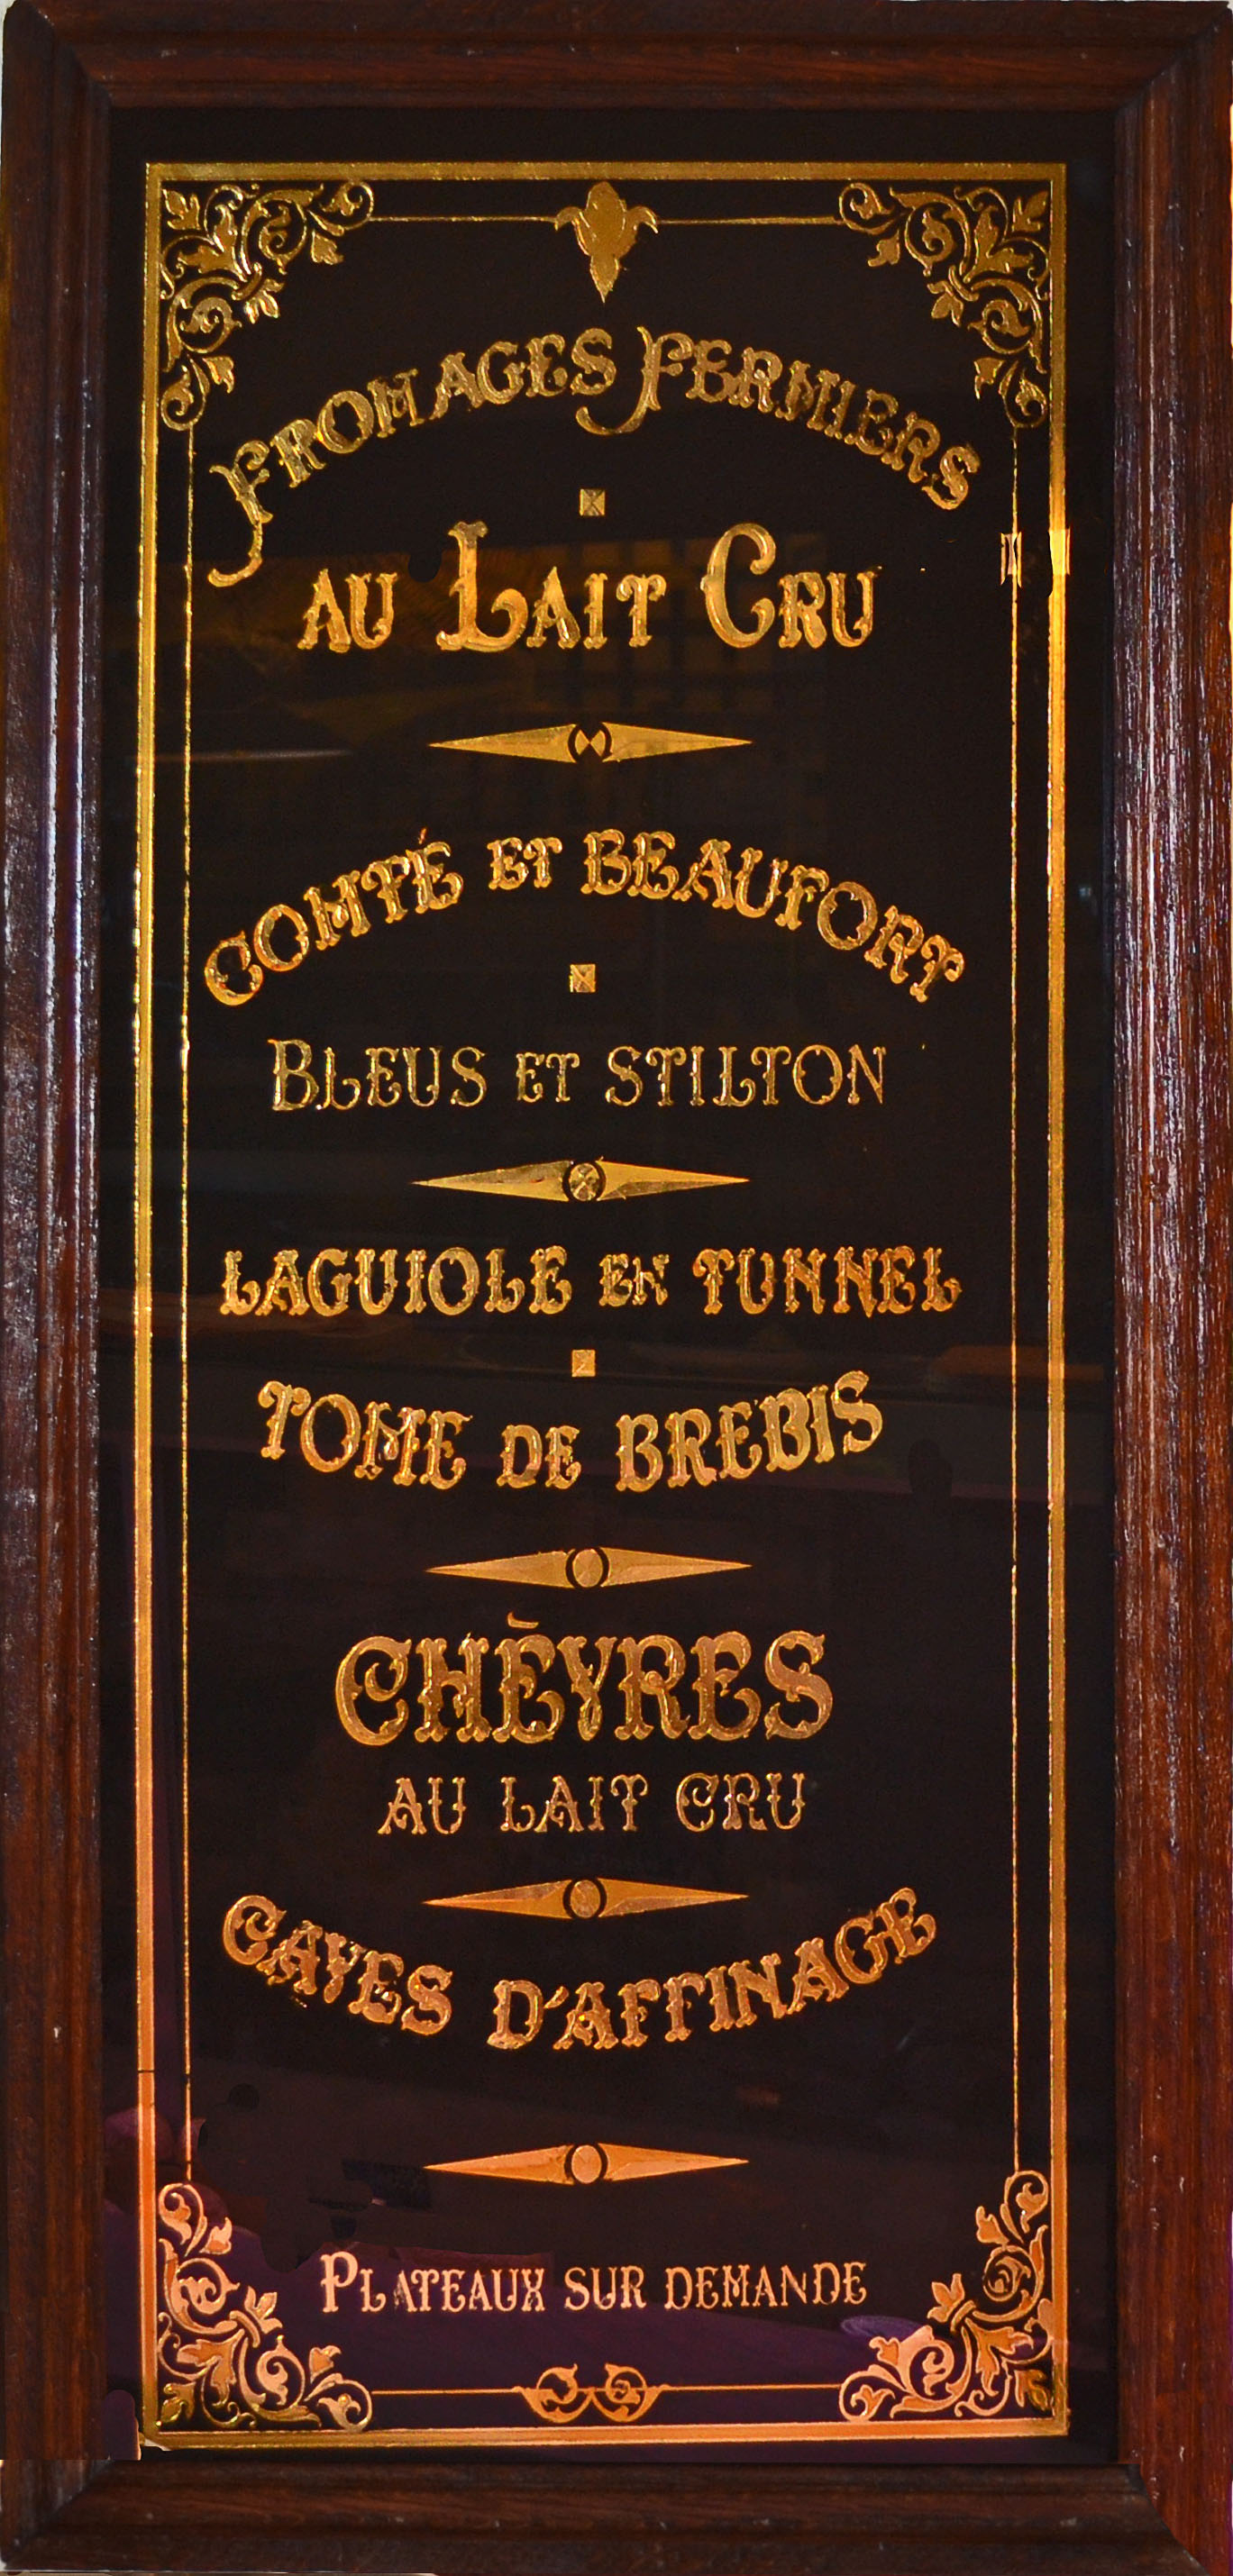 FROMAGES FERMIERS
AU LAIT CRU
COMTÉ ET BEAUFORT
BLEUS ET STILTON
LAGUIOLE EN TUNNEL
TOME DE BREBIS
CHÈVRES
AU LAIT CRU
CAVES D'AFFINAGE
PLATEAUX SUR DEMANDE